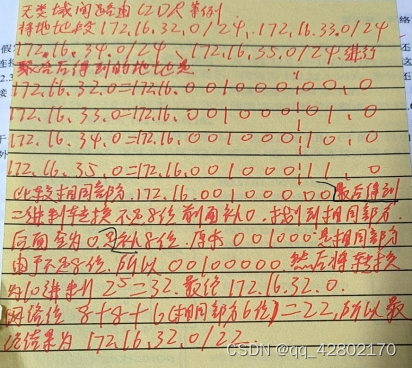 无类域间路由CIDR 算例
将地址块 172.16.32.0/24、172.16.33.0/24
172.16.34.0/24、172.16.35.0/24 进行
聚合后得到的地址是
172.16.32.0=172.16.00100000.0
172.16.33.0=172.16.00100001.0
172.16.34.0=172.16.00100010.0
172.16.35.0=172.16.00100011.0
比较相同部分,172.16.00100000最后得到
二进制转换不足8位前面补0.找到相同部分.
后面全为0 补8位.原本001000是相同部分
由于不足8位.所以00100000.然后将转换
为10进制 2^5=32.最终172.16.32.0.
网络位 8+8+6(相同部分6位)=22,所以最
后结果为 172.16.32.0/22.
CSDN @qq_42802170